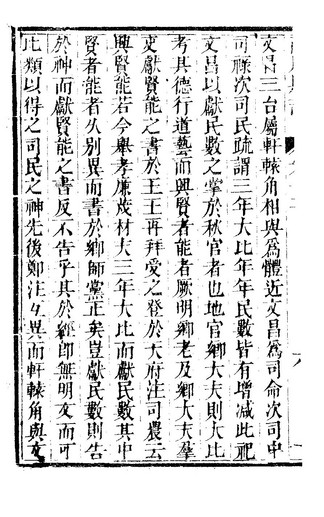 文昌三台屬軒轅角相與爲體近文昌爲司命次司中
司祿次司民疏謂三年大比年年民數皆有增減此祀
文昌以獻民數之掌於秋官者也地官鄉大夫則大比
考其德行道藝而興賢者能者厥明鄉老及鄉大夫羣
吏獻賢能之書於王王再拜受之登於天府注司農云
興賢能若今舉孝廉茂材夫三年大比而獻民數其中
賢者能者久別異而書於鄉師黨正矣豈獻民數則告
於神而獻賢能之書反不告乎其於經卽無明文而可
比類以得之司民之神先後鄭注久異而軒轅角與文